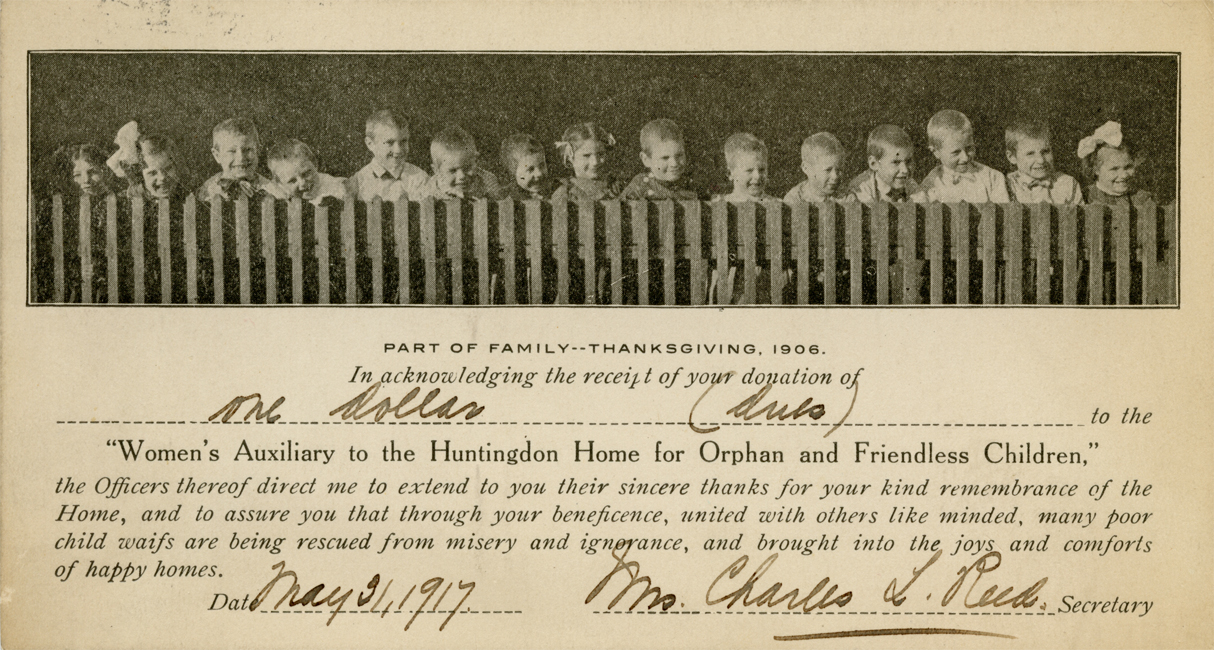 PART OF FAMILY--THANKSGIVING, 1906.
In acknowledging the receipt of your donation of
one dollar (dues) to the
“Women’s Auxiliary to the Huntingdon Home for Orphan and Friendless Children,”
the Officers thereof direct me to extend to you their sincere thanks for your kind remembrance of the
Home, and to assure you that through your beneficence, united with others like minded, many poor
child waifs are being rescued from misery and ignorance, and brought into the joys and comforts
of happy homes.
Date May 31, 1917. Mrs. Charles L. Reed. Secretary